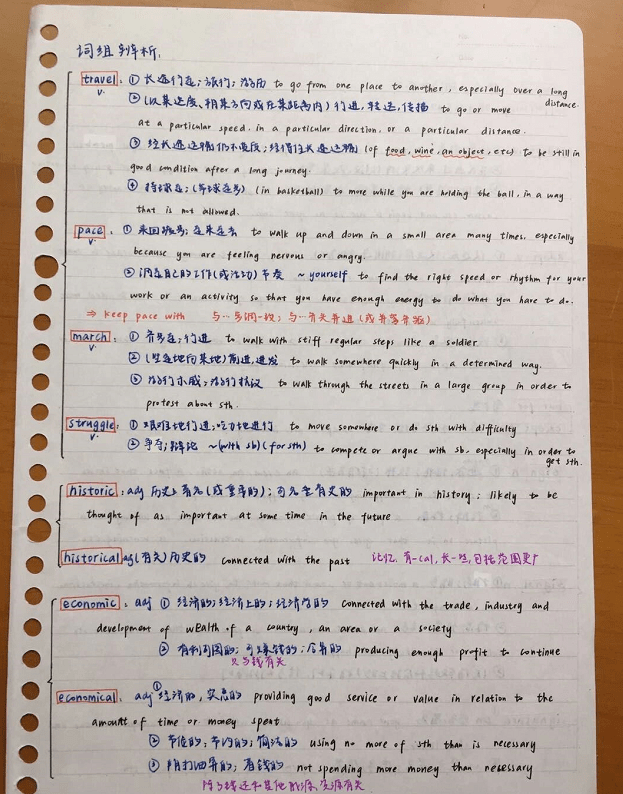 词组辨析.
travel: ① 长途行走;旅行;游历 to go from one place to another, especially over a long distance.
v. ② (以某速度、朝某方向或在某距离内)行进,转送,传播 to go or move
at a particular speed. in a particular direction. or a particular distance.
③ 经长途运输仍不变质;经得住长途运输 (of food, wine, an object, etc) to be still in
good condition after a long journey.
④ 持球走;(带球走步) (in basketball) to more while you are holding the ball, in a way
that is not allowed.
pace: ① 来回踱步;走来走去 to walk up and down in a small area many times. especially
v. because you are feeling nervous or angry.
② 调整自己的工作(或活动)节奏 ~ yourself to find the right speed or rhythm for your
work or an activity so that you have enough energy to do what you have to do.
⇒ keep pace with 与…步调一致;与…齐头并进(或并驾齐驱)
march: ① 齐步走;行进 to walk with stiff regular steps like a soldier
v. ② (坚定地向某地)前进,进发 to walk somewhere quickly in a determined way.
③ 游行示威;游行抗议 to walk through the streets in a large group in order to
protest about sth.
struggle: ① 艰难地行进;吃力地进行 to move somewhere or do sth with difficulty
v. ② 争夺;辩论 ~(with sb)(for sth) to compete or argue with sb. especially in order to get sth.
historic: adj 历史上著名(或重要的);可名垂青史的 important in history; likely to be
thought of as important at some time in the future
historical adj (有关)历史的 connected with the past 记忆. 有-cal, 长一些,包括范围更广
economic: adj ① 经济的;经济上的;经济学的 connected with the trade, industry and
development of wealth of a country, an area or a society
② 有利可图的;可赚钱的;合算的 producing enough profit to continue
只与钱有关
economical: adj ① 经济的,实惠的 providing good service or value in relation to the
amount of time or money spent
② 节俭的;节约的;简洁的 using no more of sth than is necessary
③ 精打细算的;省钱的 not spending more money than necessary
除了钱还和其他能源、资源有关